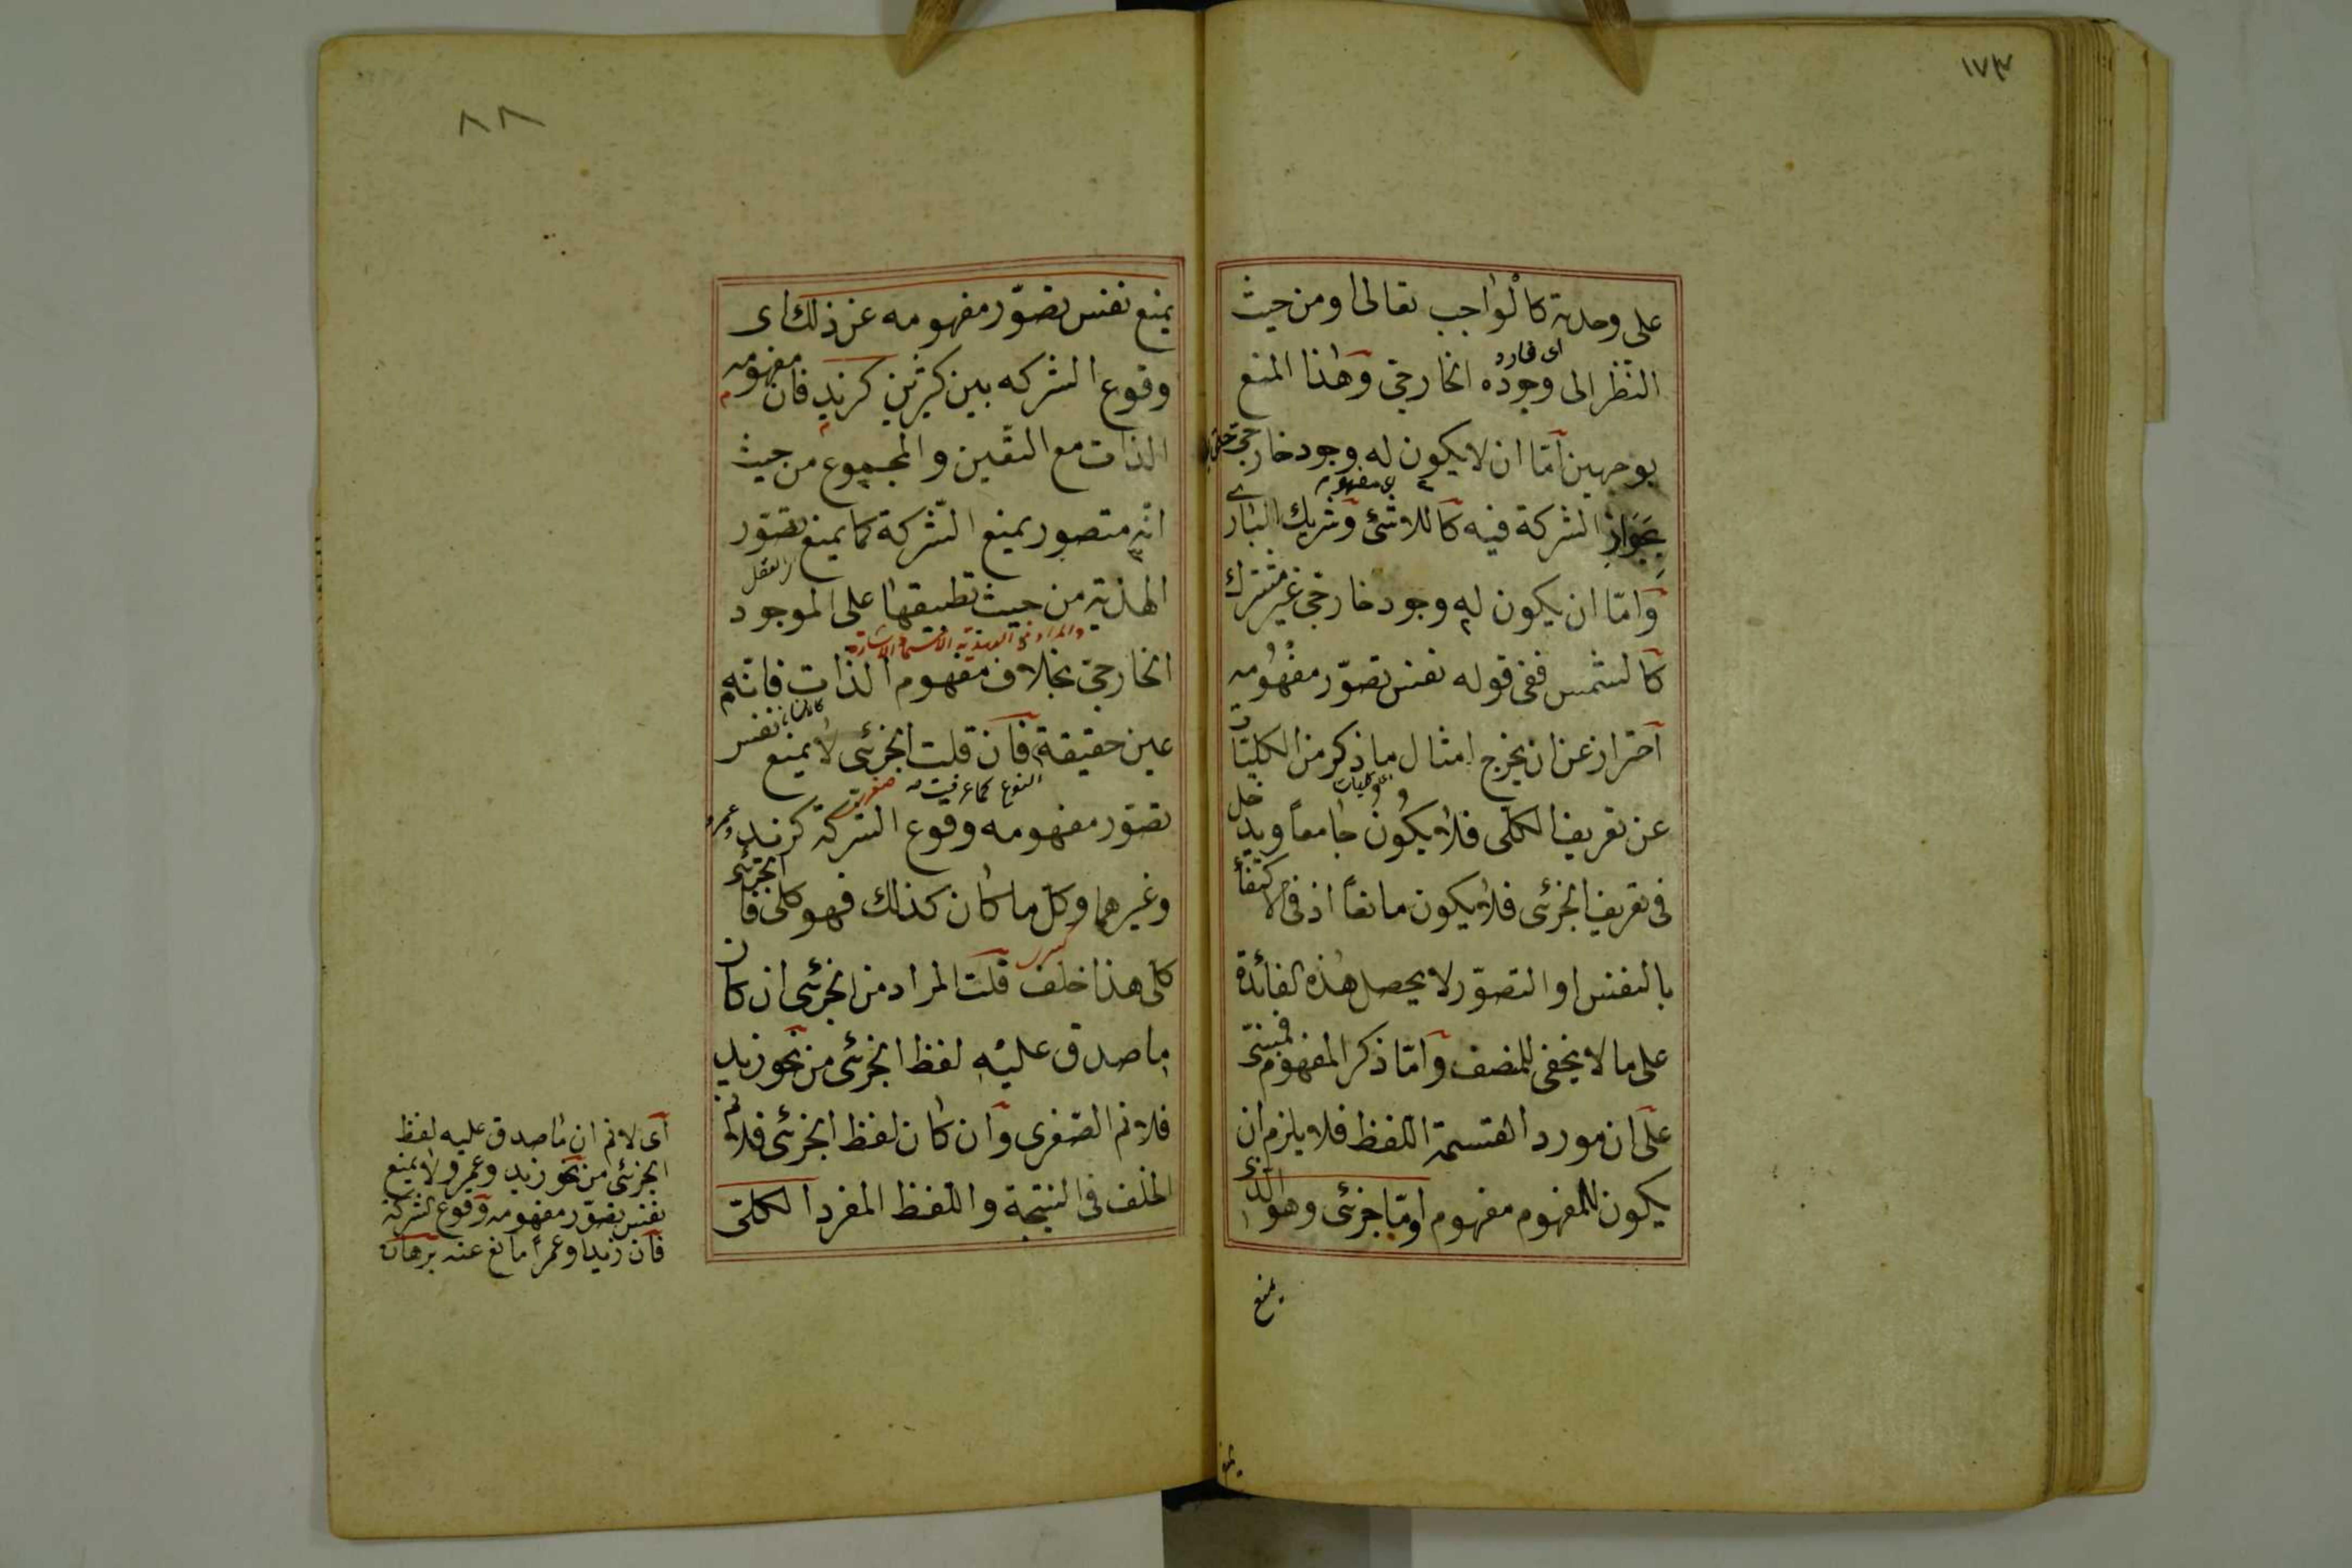 ١٧٣
على وحدته كالواجب تعالى او من حيث
النظر الى وجوده الخارجى وهذا المنع
اى فارد
بوجهين امّا ان لا يكون له وجود خارجى
اى مفهومه
بجواز الشركة فيه كاللاشئ وشريك البارى
وامّا ان يكون له وجود خارجى غير مشترك
كالشمس ففى قوله نفس تصوّر مفهومه
احتراز عن ان يخرج امثال ما ذكر من الكليّات
عن تعريف الكلّى فلا يكون جامعاً ويدخل
فى تعريف الجزئى فلا يكون مانعاً اذ فى الاكتفاء
بالنفس او التصوّر لا يحصل هذه الفائدة
على ما لا يخفى للمنصف وامّا ذكر المفهوم فمبنىّ
على ان مورد القسمة اللفظ فلا يلزم ان
يكون للمفهوم مفهوم وامّا جزئى وهو الذى
يمنع
٨٨
يمنع نفس تصوّر مفهومه عن ذلك اى
وقوع الشركه بين كثيرين كزيد فان مفهومه
الذات مع التعين والمجموع من حيث
انّه متصور يمنع الشركة كما يمنع تصوّر
العقل
الهذية من حيث تطبيقها على الموجود
والمراد من الهذية الاشارة
الخارجى بخلاف مفهوم الذات فانّه
عين حقيقة فان قلت الجزئى لا يمنع نفس
النوع كما عرفت صغرى
تصوّر مفهومه وقوع الشركة كزيد وعمرو
وغيرهما وكل ما كان كذلك فهو كلى فالجزئى
كبرى
كلى هذا خلف قلت المراد من الجزئى ان كان
ما صدق عليه لفظ الجزئى من نحو زيد
فلا نم الصغرى وان كان لفظ الجزئى فلا نم
الخلف فى النتيجة واللفظ المفرد الكلّى
اى لا نم ان ما صدق عليه لفظ
الجزئى من نحو زيد وعمرو لا يمنع
نفس تصوّر مفهومه وقوع الشركة
فان زيدا وعمرا مانع عنه برهان